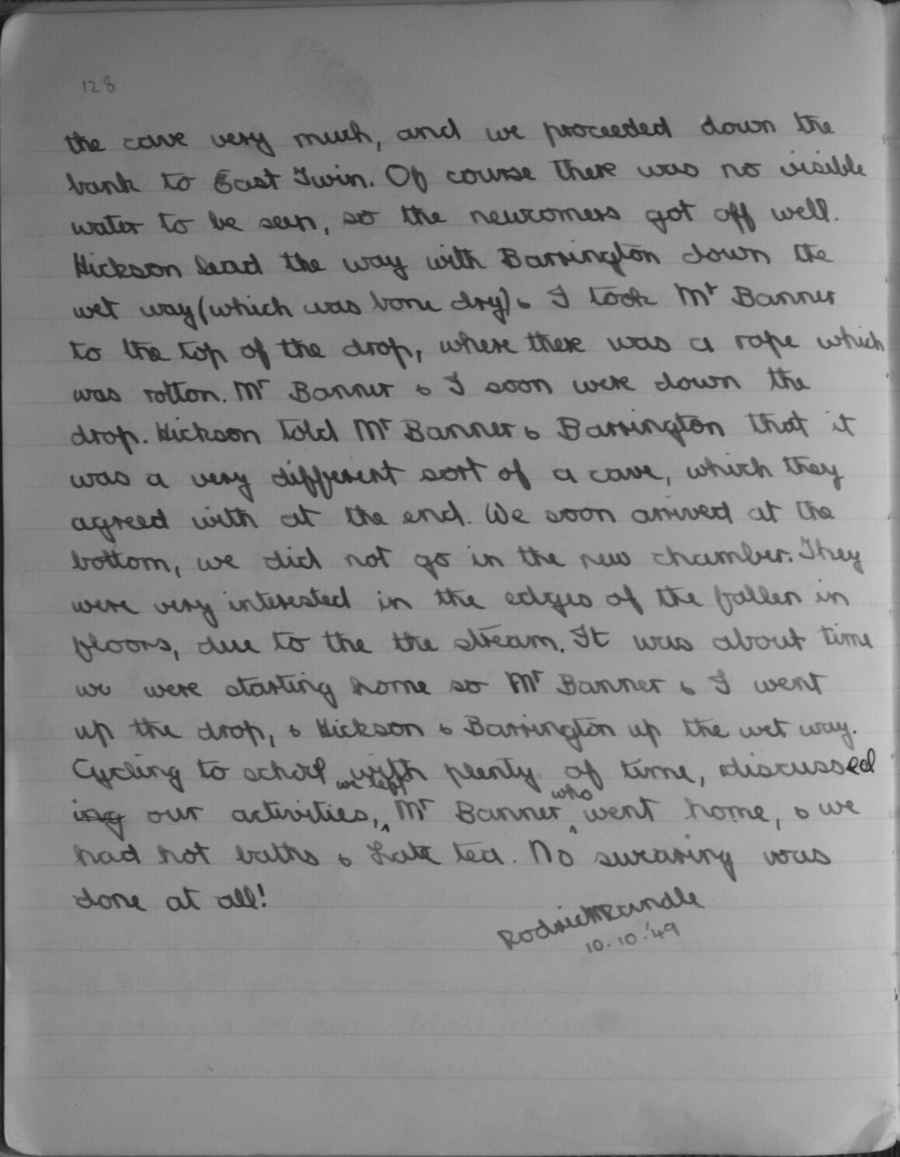 128
the cave very much, and we proceeded down the
bank to East Twin. Of course there was no visible
water to be seen, so the newcomers got off well.
Hickson lead the way with Barrington down the
wet way (which was bone dry) & I took Mr Banner
to the top of the drop, where there was a rope which
was rotton. Mr Banner & I soon were down the
drop. Hickson told Mr Banner & Barrington that it
was a very different sort of a cave, which they
agreed with at the end. We soon arrived at the
bottom, we did not go in the new chamber. They
were very interested in the edges of the fallen in
floors, due to the the stream. It was about time
we were starting home so Mr Banner & I went
up the drop, & Hickson & Barrington up the wet way.
Cycling to school with plenty of time, discussed
we left who
ing our activities, Mr Banner went home, & we
had hot baths & late tea. No swearing was
done at all!
Rodrick Rundle
10.10.'49